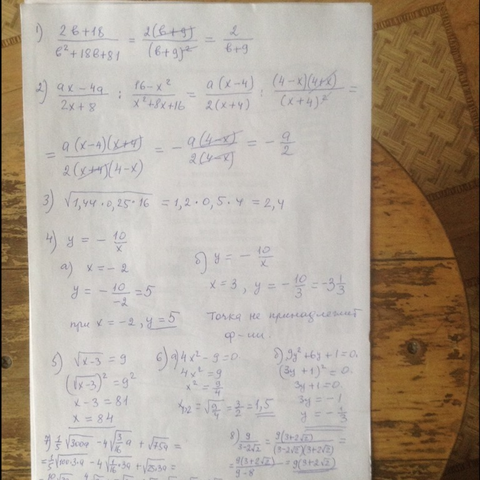 1) (2b+18)/(b²+18b+81) = 2(b+9)/(b+9)² = 2/(b+9)
2) (ax-4a)/(2x+8) : (16-x²)/(x²+8x+16) = a(x-4)/2(x+4) : (4-x)(4+x)/(x+4)² =
= a(x-4)(x+4)/2(x+4)(4-x) = - a(4-x)/2(4-x) = - a/2
3) √1,44·0,25·16 = 1,2·0,5·4 = 2,4
4) y = - 10/x
а) x = -2
y = - 10/-2 = 5
при x = -2, y = 5
б) y = - 10/x
x = 3, y = - 10/3 = -3 1/3
Точка не принадлежит
ф-ии.
5) √x-3 = 9
(√x-3)² = 9²
x-3 = 81
x = 84
6) а) 4x²-9=0
4x² = 9
x² = 9/4
x₁,₂ = √9/4 = 3/2 = 1,5
б) 9y²+6y+1=0
(3y+1)² = 0
3y+1=0
3y = -1
y = - 1/3
8) 9/(3-2√2) = 9(3+2√2)/(3-2√2)(3+2√2) =
= 9(3+2√2)/(9-8) = 9(3+2√2)